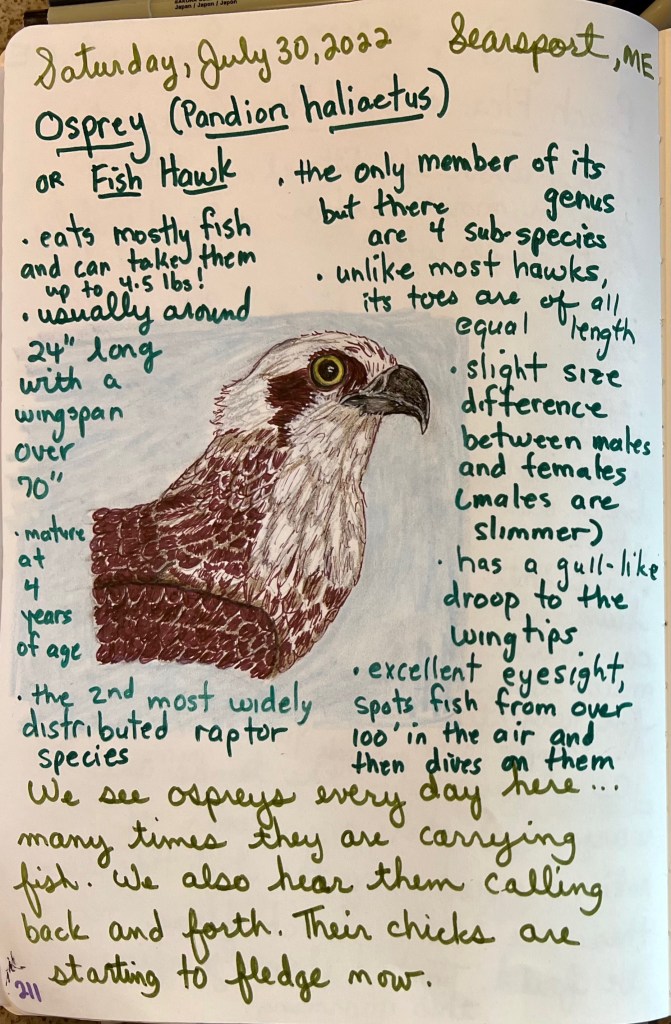 Saturday, July 30, 2022 Searsport, ME
Osprey (Pandion haliaetus)
OR Fish Hawk
• eats mostly fish
and can take them
up to 4.5 lbs!
• usually around
24" long
with a
wingspan
over
70"
• mature
at
4
years
of age
• the 2nd most widely
distributed raptor
species
• the only member of its
genus
but there
are 4 sub-species
• unlike most hawks,
its toes are of all
equal length
• slight size
difference
between males
and females
(males are
slimmer)
• has a gull-like
droop to the
wingtips
• excellent eyesight,
spots fish from over
100' in the air and
then dives on them
We see ospreys every day here...
many times they are carrying
fish. We also hear them calling
back and forth. Their chicks are
starting to fledge now.
211
Japan / Japon / Japan